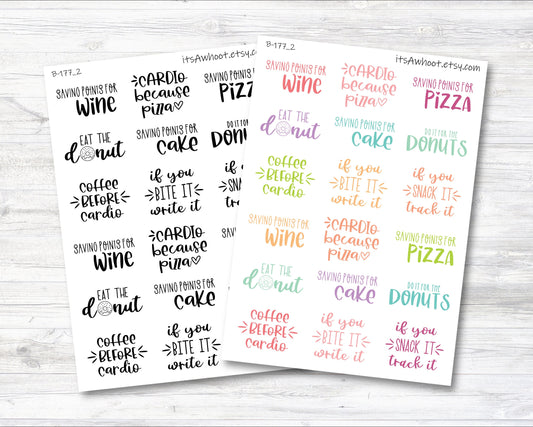 B-177_2
itsAwhoot.etsy.com
SAVING POINTS FOR
WINE
CARDIO
because
pizza
SAVING POINTS FOR
PIZZA
EAT THE
donut
SAVING POINTS FOR
CAKE
DO IT FOR THE
DONUTS
coffee
BEFORE
cardio
if you
BITE IT
write it
if you
SNACK IT
track it
SAVING POINTS FOR
WINE
CARDIO
because
pizza
SAVING POINTS FOR
PIZZA
EAT THE
donut
SAVING POINTS FOR
CAKE
DO IT FOR THE
DONUTS
coffee
BEFORE
cardio
if you
BITE IT
write it
if you
SNACK IT
track it
B-177_2
itsAwhoot.etsy.com
SAVING POINTS FOR
WINE
CARDIO
because
pizza
SAVING POINTS FOR
PIZZA
EAT THE
donut
SAVING POINTS FOR
CAKE
DO IT FOR THE
DONUTS
coffee
BEFORE
cardio
if you
BITE IT
write it
if you
SNACK IT
track it
SAVING POINTS FOR
WINE
CARDIO
because
pizza
SAVING POINTS FOR
PIZZA
EAT THE
donut
SAVING POINTS FOR
CAKE
DO IT FOR THE
DONUTS
coffee
BEFORE
cardio
if you
BITE IT
write it
if you
SNACK IT
track it